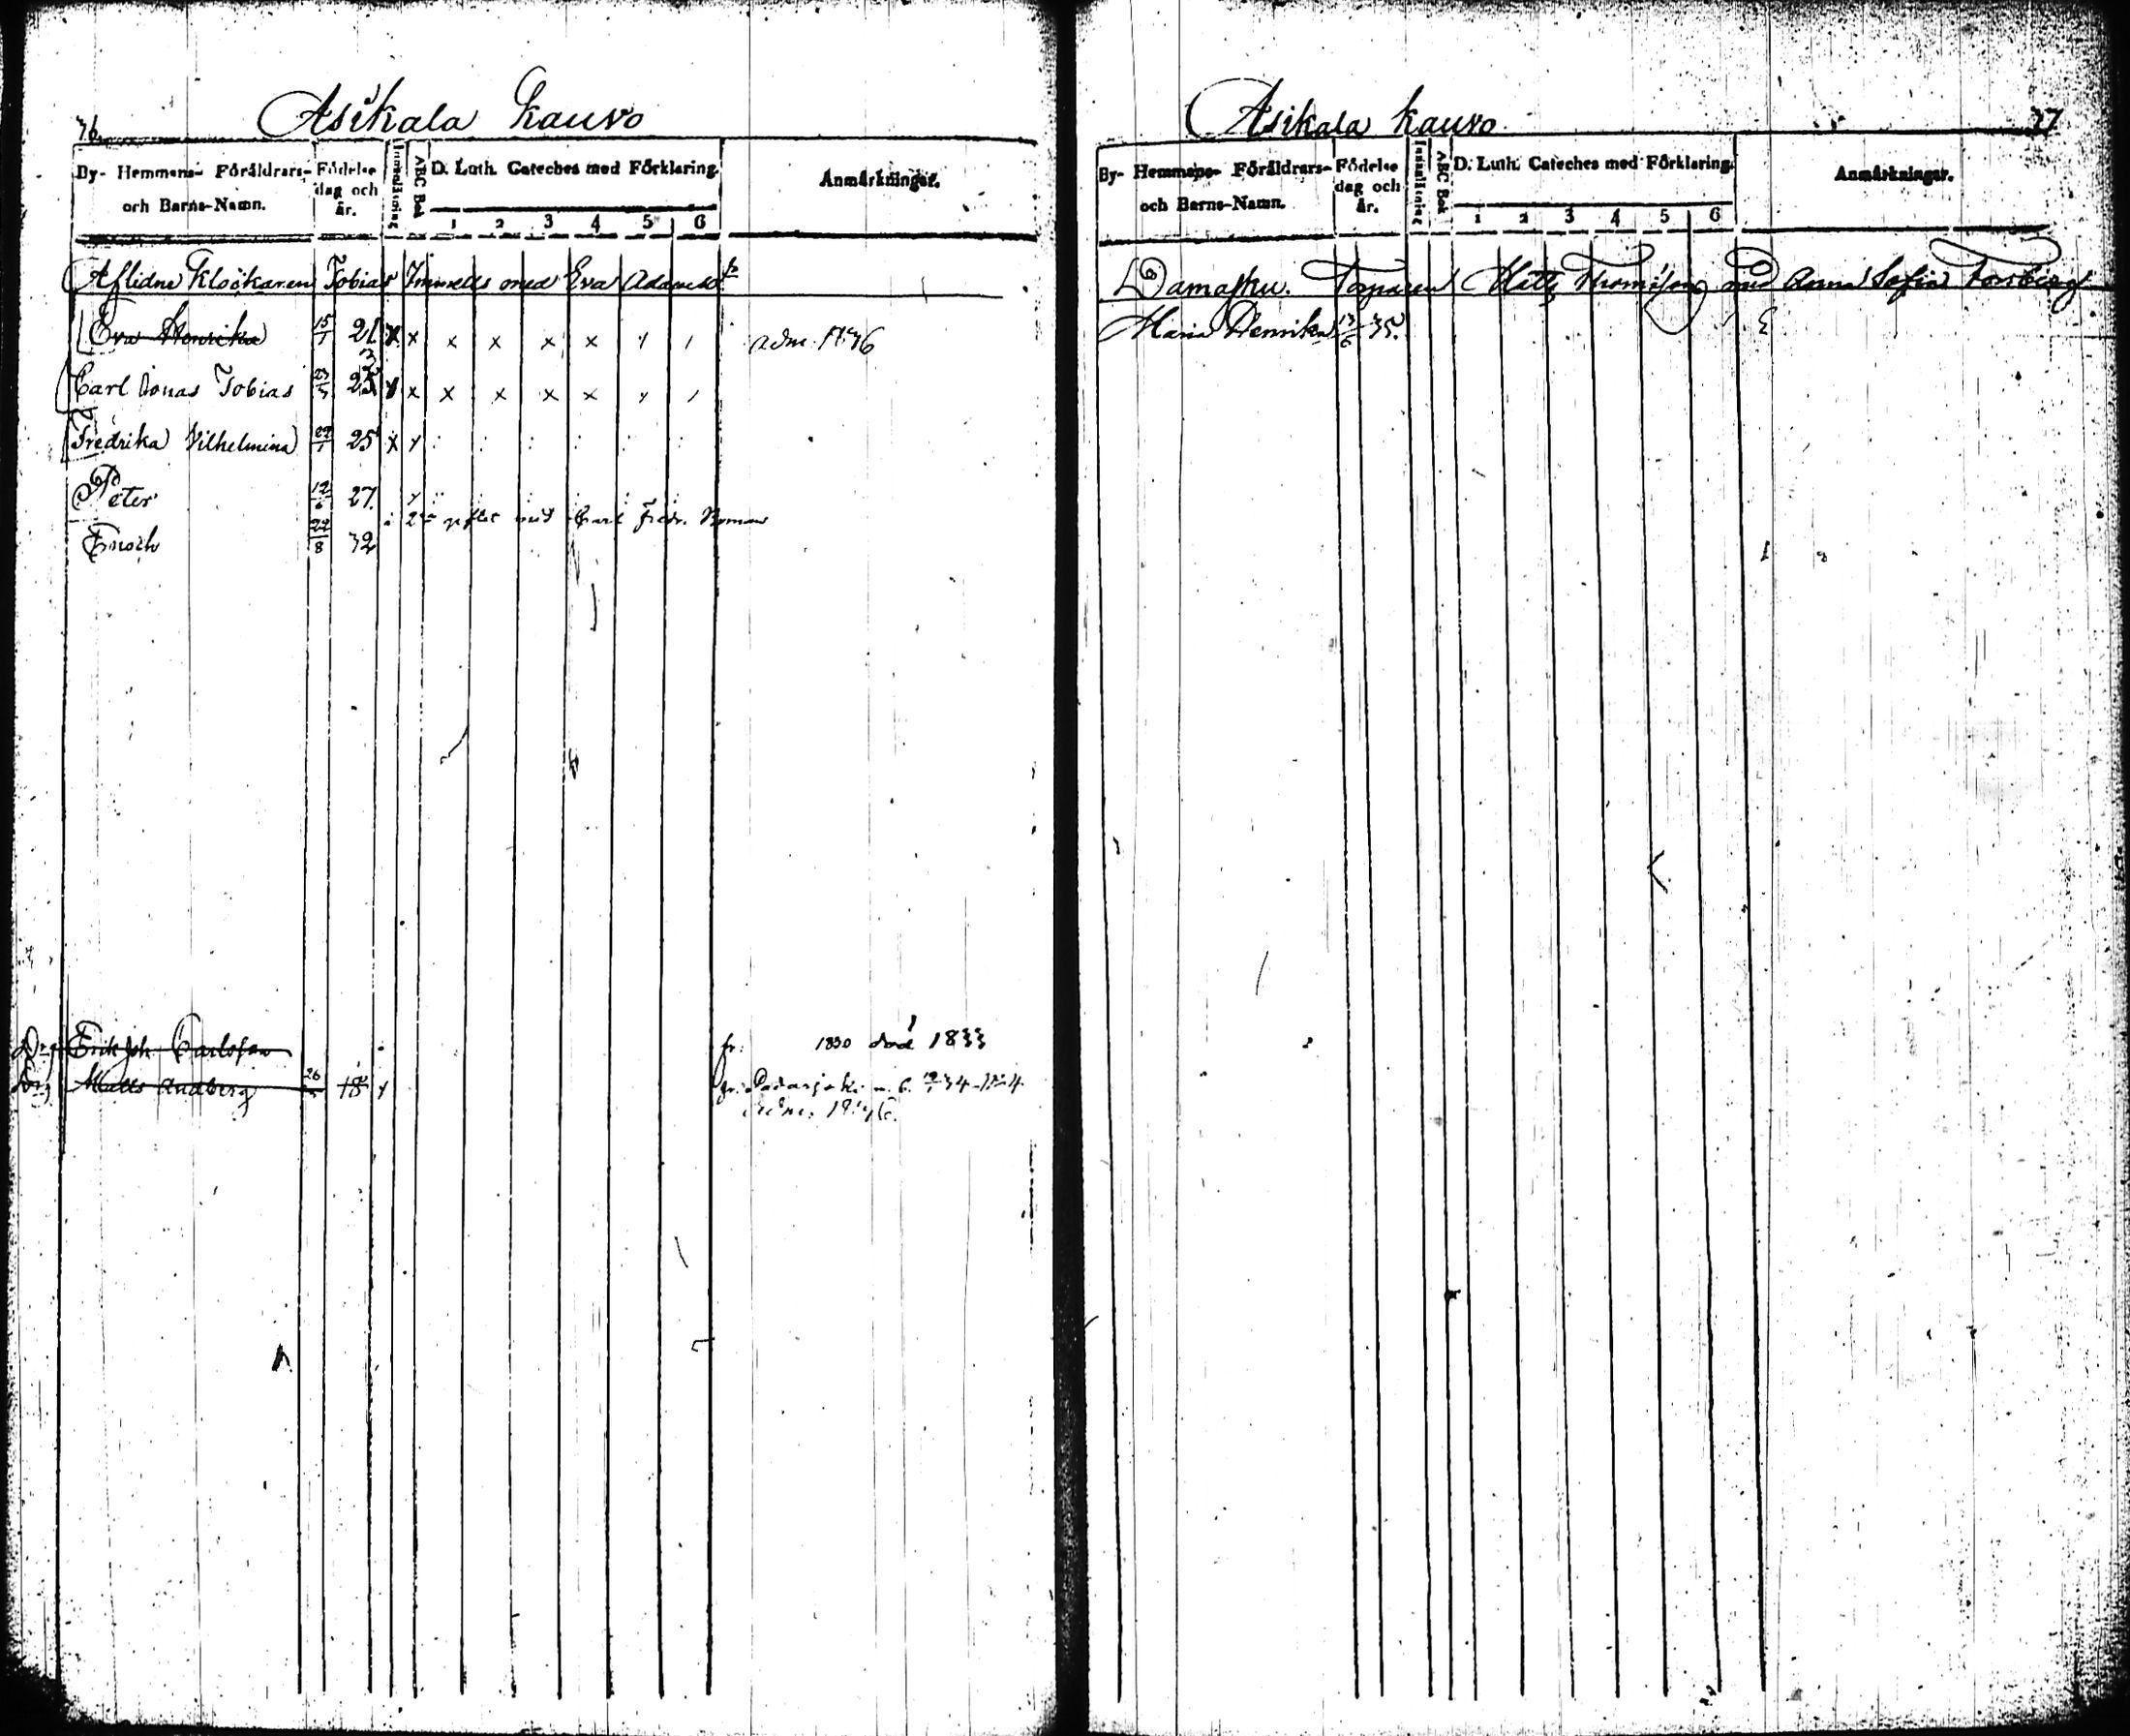 76 Asikala kauvo
By- Hemmens- Föräldrars- och Barns-Namn. Födelse dag och år. Innanläsning ABC Bok D. Luth. Cateches med Förklaring. 1 2 3 4 5 6 Anmärkningar.
Aflidne Klockaren Tobias med Eva Adamsdtr
Eva Henrika 15/1 21 x x x x x x adm. 1836
Carl Jonas Tobias 23 x x x x x
Fredrika Vilhelmina 22/1 25 x
Peter 12 27
2 giftet med Carl Fredr.
Enoch 22/8 32
Drg Erik Joh. Carlsson fr: 1830 död 1833
Drg Matts Andberg 26 18 fr: Padasjoki
Asikala kauvo 77
By- Hemmans- Föräldrars- och Barns-Namn. Födelse dag och år. Innanläsning ABC Bok D. Luth. Cateches med Förklaring. 1 2 3 4 5 6 Anmärkningar.
Damasku. Torparen Matts Thomasson med Anna Sofia Forsberg
Maria Henrika 13/6 35.